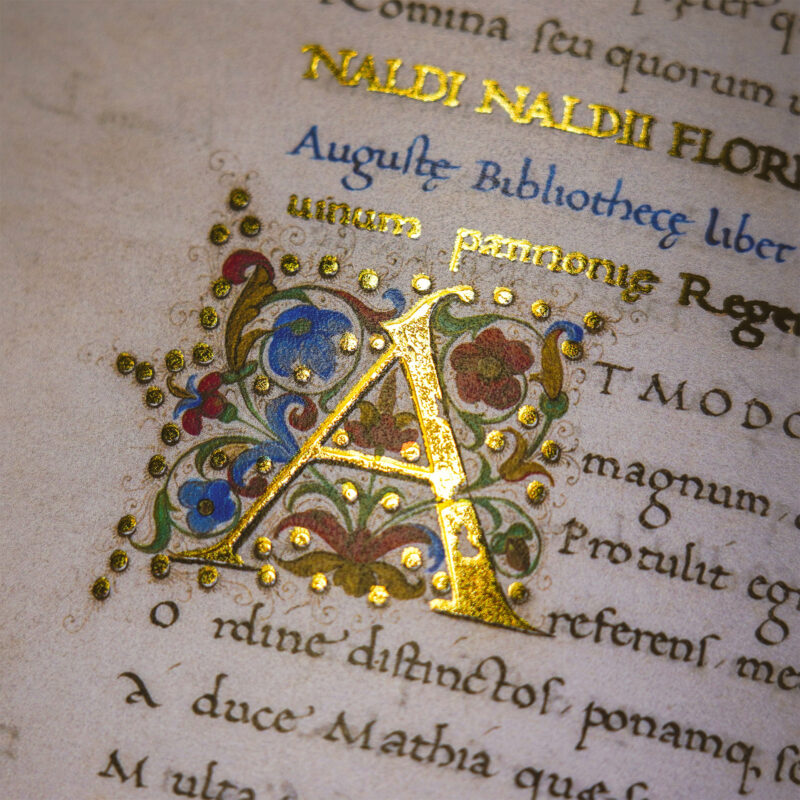 Nomina seu quorum
NALDI NALDII FLOR
Auguſtę Bibliothecę liber
uinum pannonię Regem
AT MODO
magnum
Protulit
referenſ, me
O rdine diſtinctoſ, ponamq,
A duce Mathia quę
M ulta